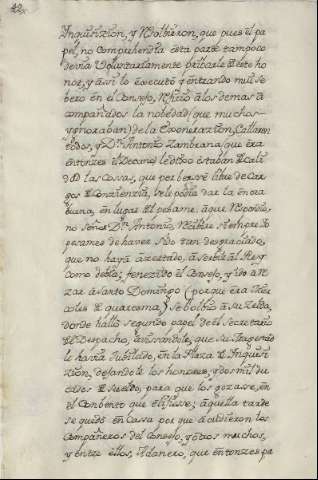 42
Inquisizion, y Resolbieron, que pues el pa
pel, no Comprehendia esta parte tampoco
devia Voluntariamente pribarle de este ho
nor, y assi lo executò y entrando mui se
bero en el Consejo, hizolo a los demas a
compañados la nobedad (que muchos
ygnoraban) de la Exoneracion, Callaron
todos, y Dn Antonio Zambrana (que era
entonzes el Decano) le dixo estaban de Cali
dad las cossas, que por berse libre de Car
gos de Conzienzia, se le podia dar la enora
buena, en lugar del pesame, à que Respondio,
no señor Dn Antonio, Recibire siempre los
pesames de haver sido tan desgraciado,
que no haya azertado, à serbir al Rey
como debia; fenezido el Consejo, y ido à
zar à Santo Domingo (porque era Mier
coles de quaresma) se bolbiò à su Zelda,
donde hallò segundo papel de el Secretario
del Despacho, avisandole, que su Magestad
le havia Jubilado, en la Plaza de Inquisi
zion, dejandole los honores, y dos mil du
cados de sueldo, para que los gozasse, en
el Conbento que elijiesse; aquella tarde
se quedò en Cassa por que asistieron los
Compañeros del Consejo, y otros muchos,
y entre ellos, Adanero, que entonzes pa